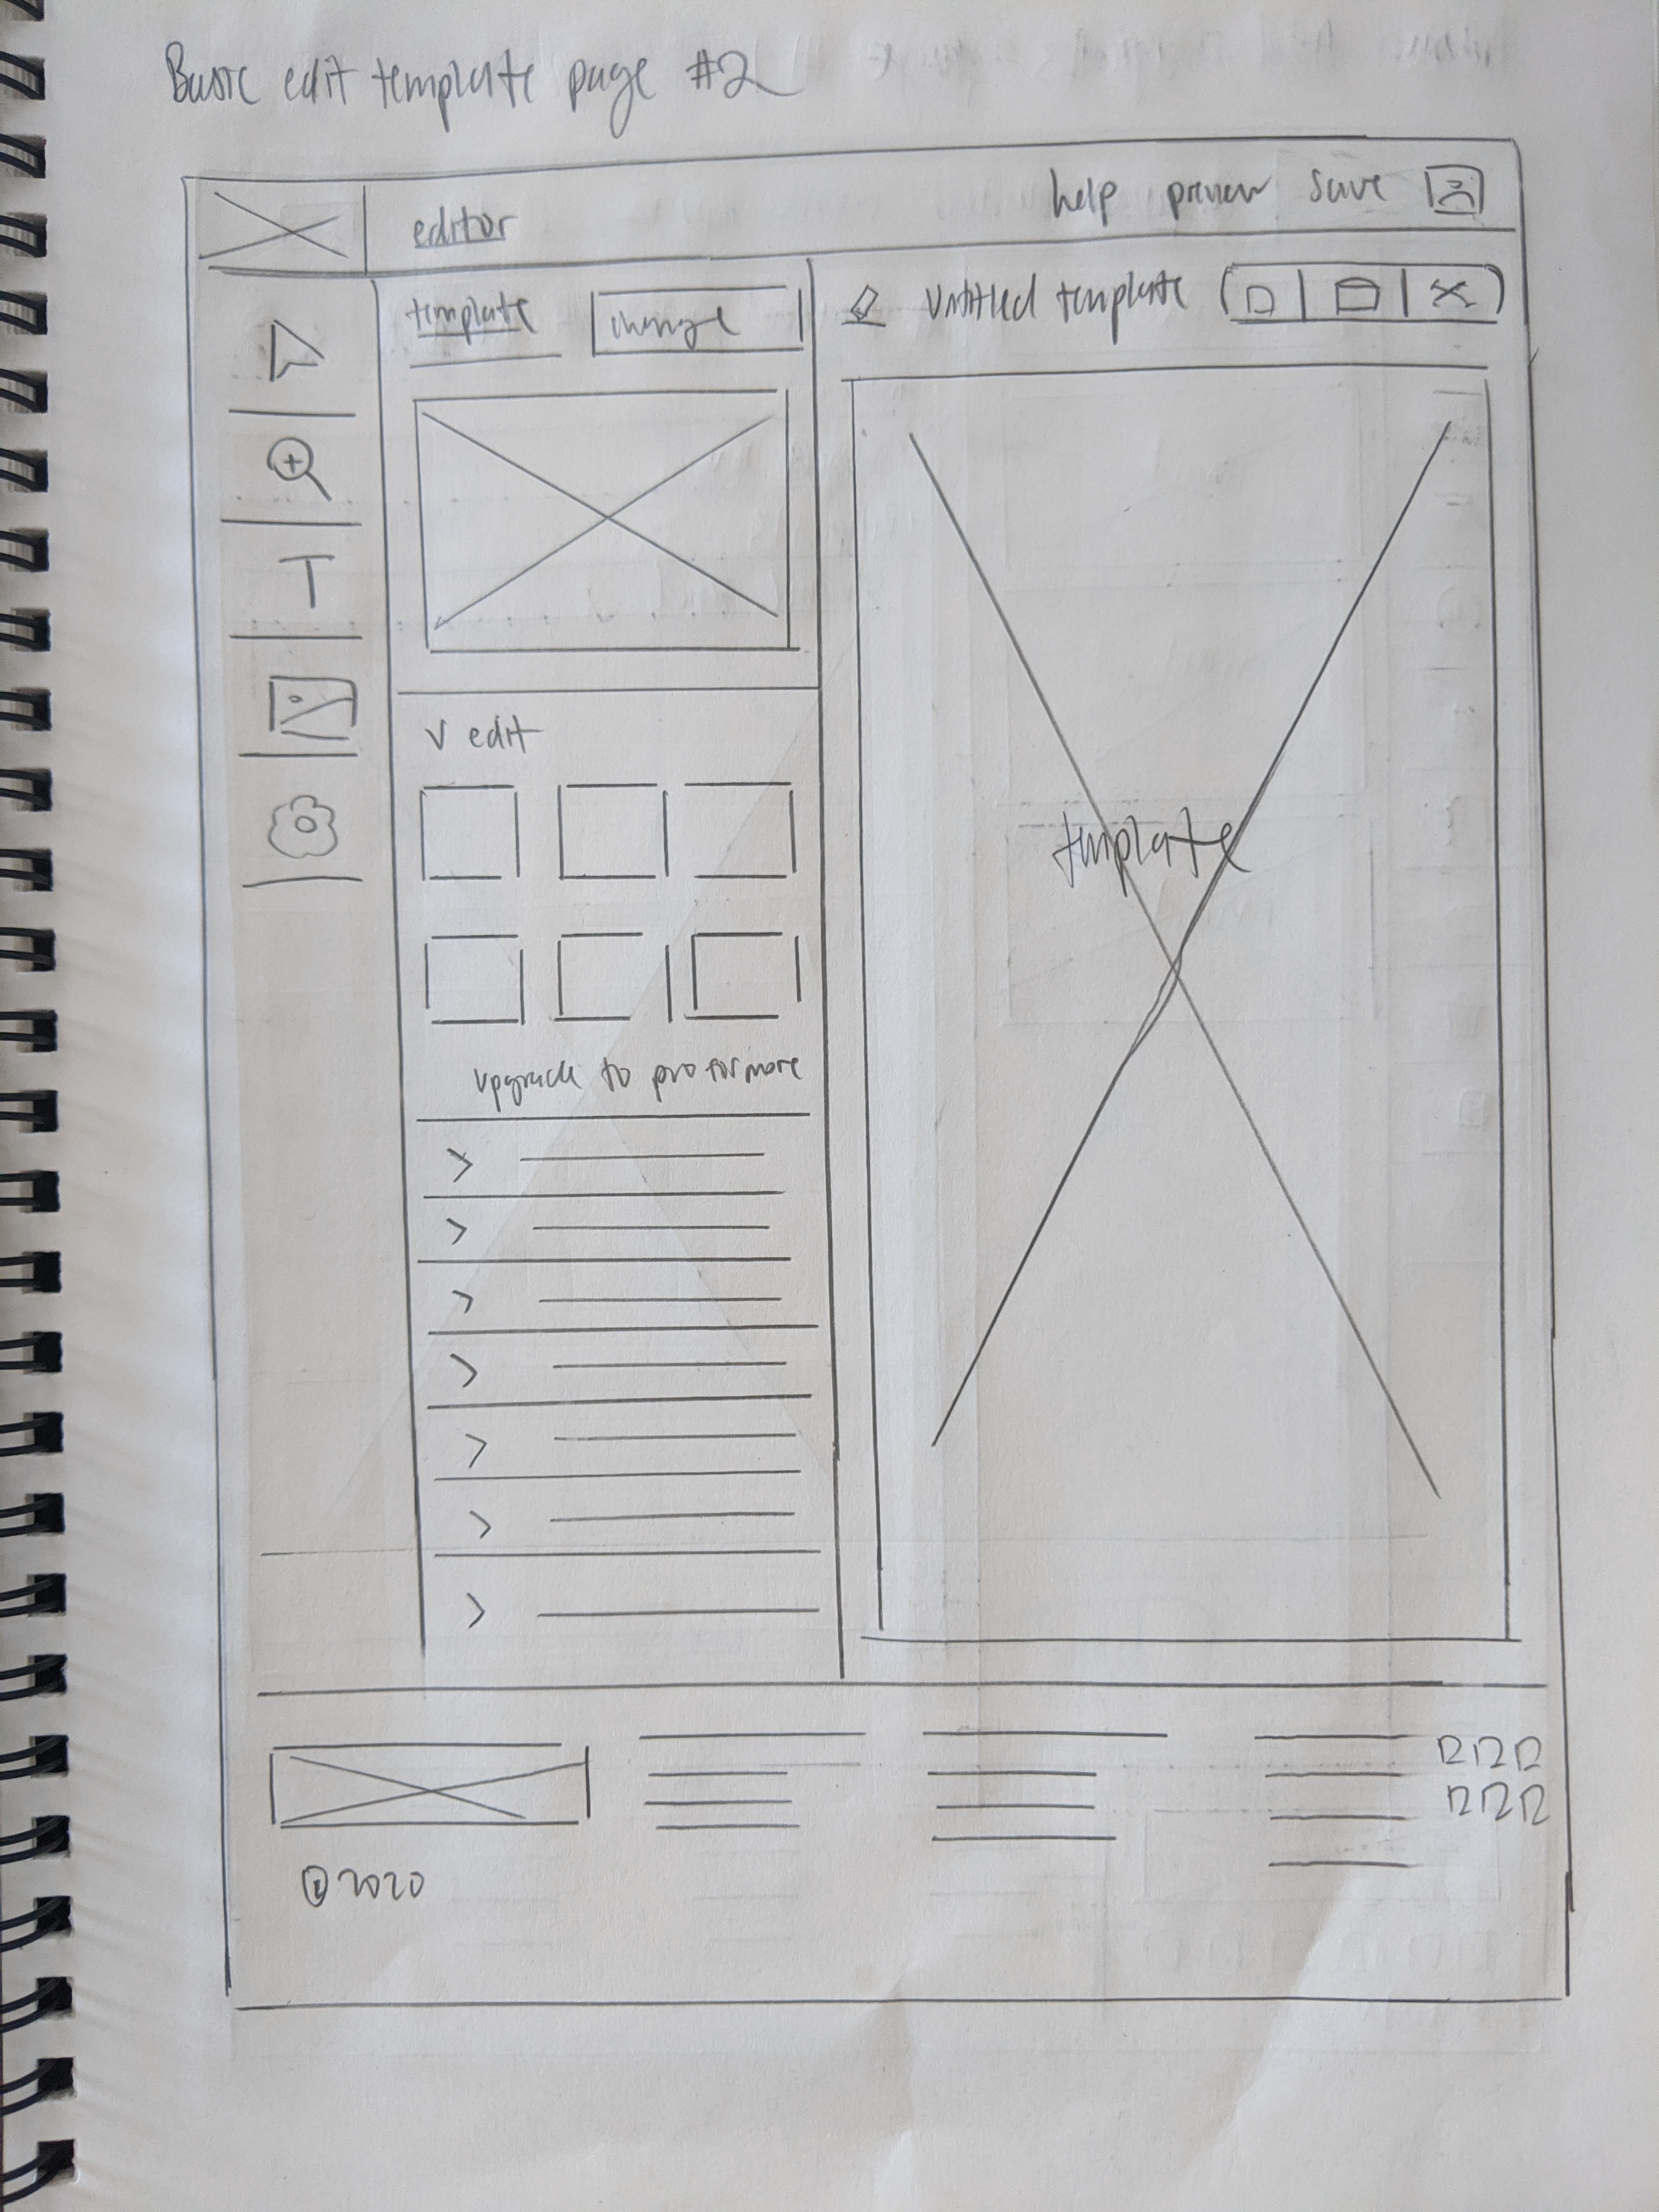 Basic edit template page #2
editor
help preview save
template change
Untitled template
T
V edit
template
upgrade to pro for more
©2020